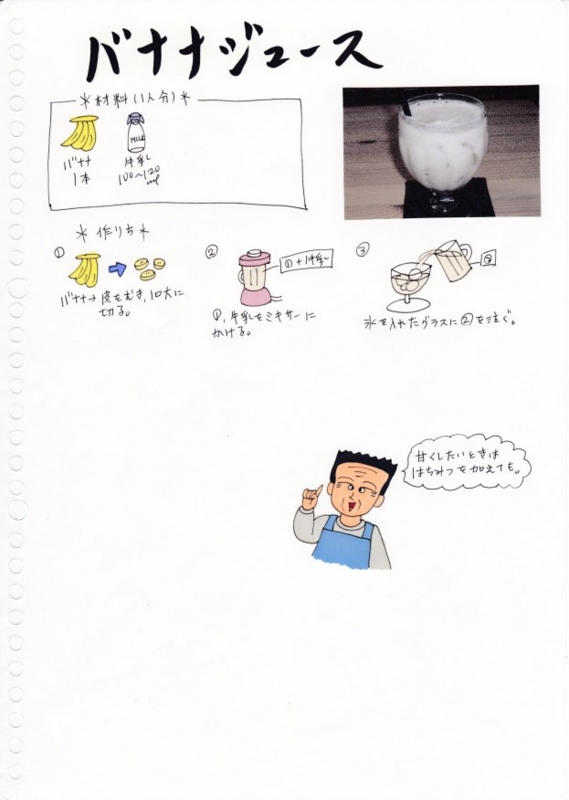 バナナジュース
＊材料(1人分)＊
MILK
バナナ
1本
牛乳
100〜120
ml
＊作り方＊
①
バナナ→皮をむき、1口大に
切る。
②
①+牛乳
①、牛乳をミキサーに
かける。
③
②
氷を入れたグラスに②を注ぐ。
甘くしたいときは
はちみつを加えても。